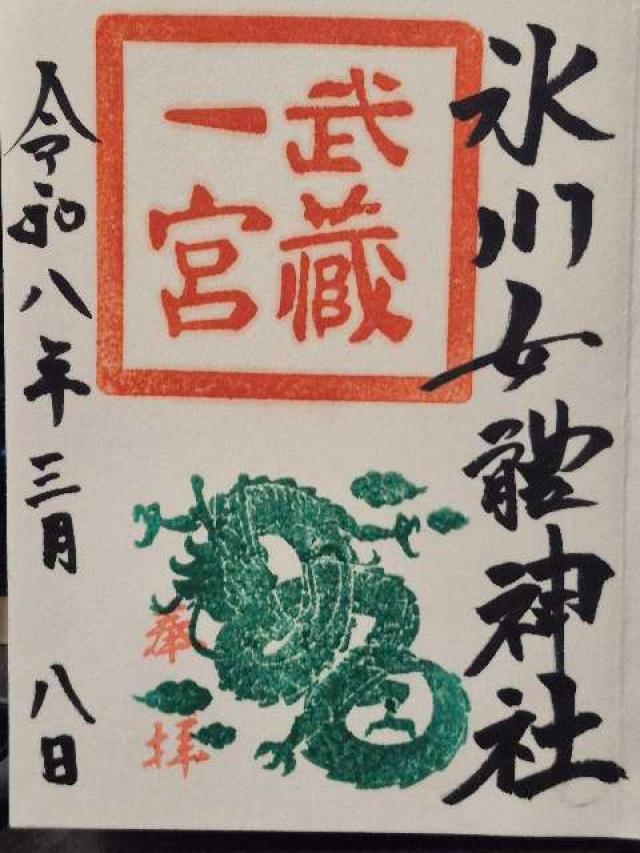 氷川女體神社
武蔵
一宮
奉拝
令和八年三月 八日